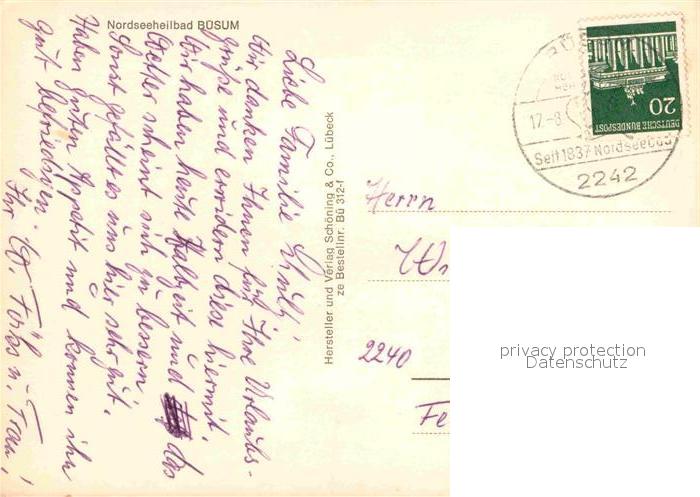 Nordseeheilbad BÜSUM
Liebe Familie
Wir danken Ihnen für Ihre Urlaubs-
grüße und erwidern diese hiermit.
Wir haben heute Halbzeit und das
Wetter scheint sich zu bessern.
Sonst gefällt es uns hier sehr gut.
Haben guten Appetit und können ihn
gut befriedigen.
Ihr W. u. Frau!
Hersteller und Verlag Schöning & Co., Lübeck
ze Bestellnr. Bü 312-f
17.-8.
Seit 1837 Nordseebad
2242
20
DEUTSCHE BUNDESPOST
Herrn
2240
privacy protection
Datenschutz